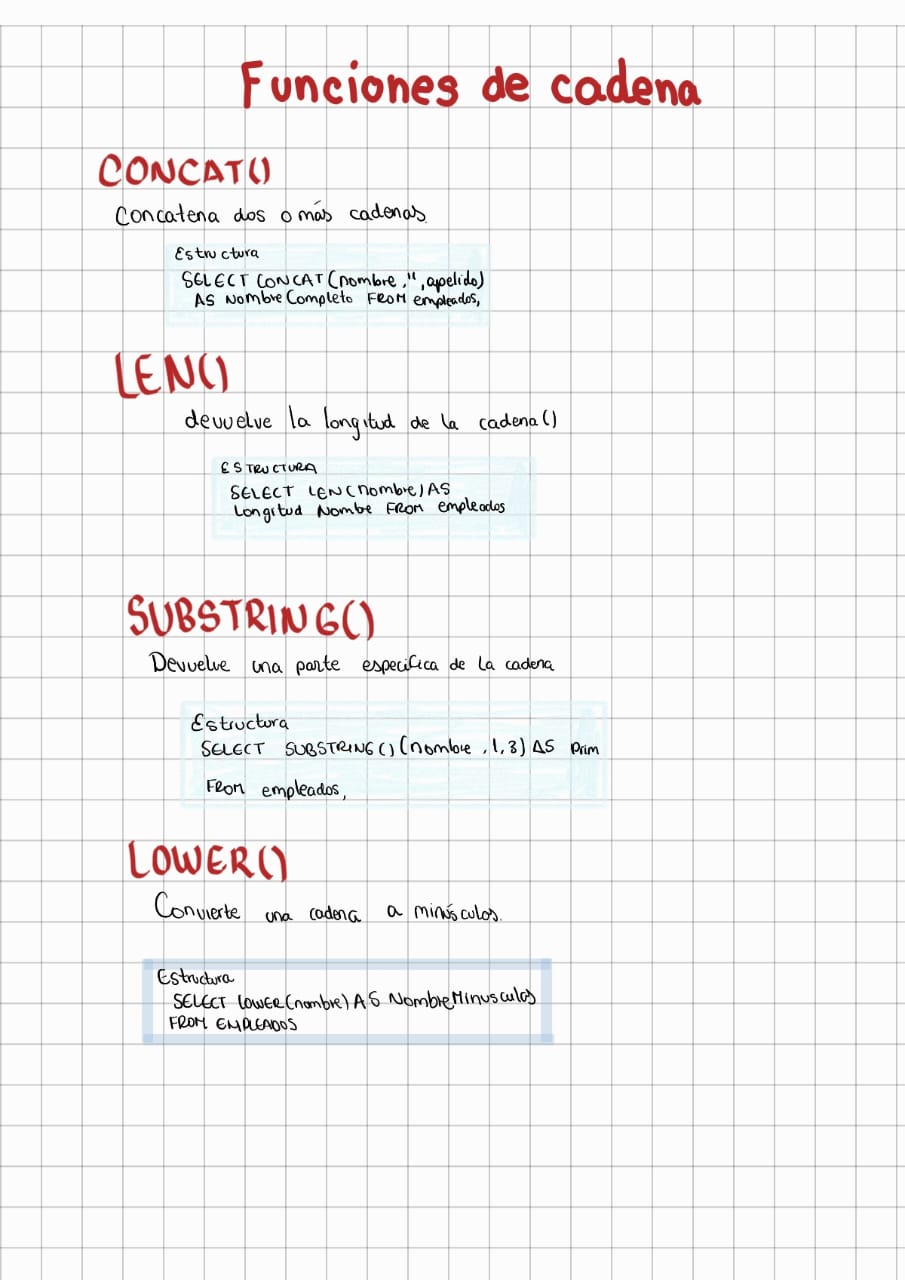 Funciones de cadena
CONCAT()
Concatena dos o más cadenas.
Estructura
SELECT CONCAT(nombre,'',apelido)
AS NombreCompleto FROM empleados,
LEN()
devuelve la longitud de la cadena()
ESTRUCTURA
SELECT LEN(nombre)AS
Longitud Nombe FROM empleados
SUBSTRING()
Devuelve una parte especifica de la cadena
Estructura
SELECT SUBSTRING()(nombre,1,3) AS Prim
FROM empleados,
LOWER()
Convierte una cadena a minúsculos.
Estructura
SELECT LOWER(nombre) AS NombreMinusculos
FROM EMPLEADOS